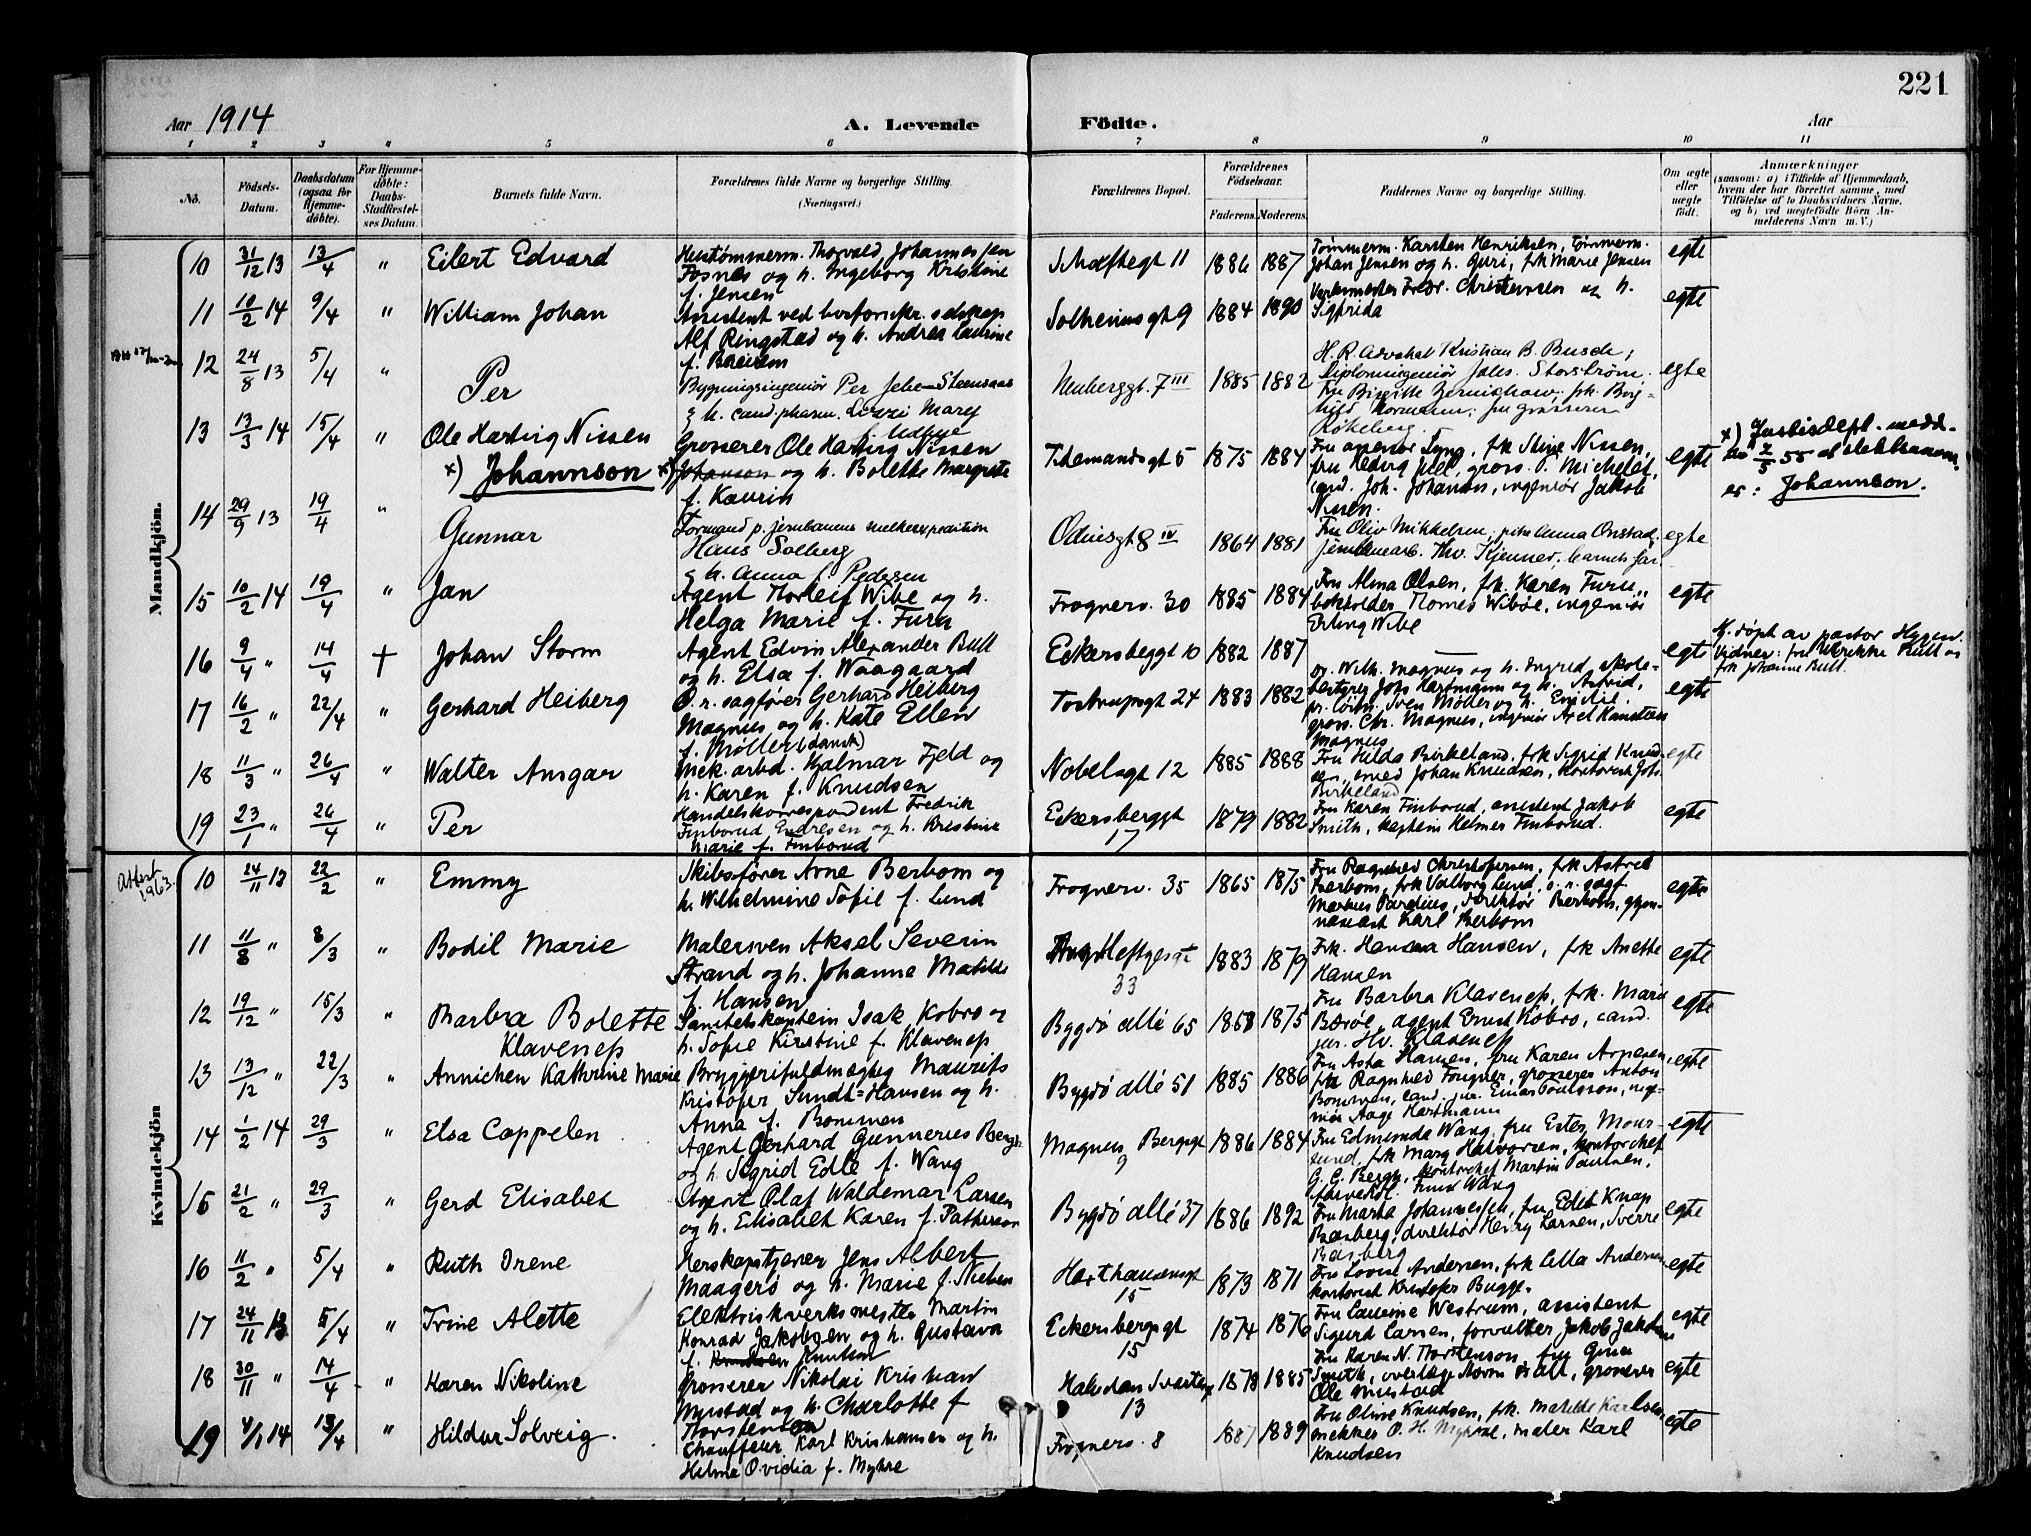 221
Aar 1914
A. Levende Födte.
Aar
1 2 3 4 5 6 7 8 9 10 11
No.
Födsels-Datum.
Daabsdatum (ogsaa for Hjemme-döbte).
For Hjemme-döbte: Daabs-Stadfæstelses Datum.
Barnets fulde Navn.
Forældrenes fulde Navne og borgerlige Stilling.
(Næringsvei.)
Forældrenes Bopæl.
Forældrenes Födselsaar.
Faderens. Moderens.
Faddernes Navne og borgerlige Stilling.
Om ægte eller uægte födt.
Anmærkninger
(saasom: a) i Tilfælde af Hjemmedaab,
hvem der har forrettet samme, med
Tilföielse af to Daabsvidners Navne,
og b) ved uægtefödte Börn An-
melderens Navn m. V.)
Mandkjön.
10 31/12 13 13/4 " Eilert Edvard
Hustømmerm. Thorvald Johannessen
Fosnes og h. Ingeborg Kristine
f. Jensen
Schæffegt 11 1886 1887
Tømmerm. Karsten Henriksen, Tømmerm.
Johan Jensen og h. Guri, frk Marie Jensen
egte
11 10/2 14 9/4 " William Johan
Assistent ved
Alf Ringstad og h. Andrea Laurine
Solheimsgt 9 1884 1890
Verkmester Fredr. Christensen og h.
Sigfrida
egte
12 24/8 13 5/4 " Per
Bygningsingeniør Per
g h. cand. pharm. Lizzi Mary
f. Udbye
Neuberggt. 7 III 1885 1882
H. R. Advokat Kristian B. Busch;
Diplomingeniør Johs. Storstrøm.
Fru Birgitte
egte
13 13/3 14 15/4 " Ole Hartvig Nissen
x) Johannson
Grosserer Ole Hartvig Nissen
x) Johanson og h. Bolette Margrete
f. Kaurin
Tidemandsgt 5 1875 1884
frk Stine Nissen,
fru Hedvig Juel, gross. O. Michelet,
cand. Joh. Johanson, ingeniør Jakob
Nissen.
egte
x) Justisdept. medd.
7/5 55 at slektsnavn
er: Johannson.
14 29/9 13 19/4 " Gunnar
Formand p. jernbanens melkeexpedition
Hans Solberg
g h. Anna f. Pedersen
Odinsgt 8 IV 1864 1881
Fru Oliv Mikkelsen; pike Anna Onstad;
Jernbanearb. Thv. Kjenner, barnets far
egte
15 10/2 14 19/4 " Jan
Agent Thorleif Wibe og h.
Helga Marie f. Furu
Frognerv. 30 1885 1884
Fru Alma Olsen, frk. Karen Furu,
bokholder Thomes Wibóe, ingeniør
Erling Wibe
egte
16 9/4 " 14/4 † Johan Storm
Agent Edvin Alexander Bull
og h. Elsa f. Waagaard
Eckersberggt 10 1882 1887
—
egte
Hj. døpt av pastor Hygen.
Vidner: fru Bull og
frk Johanne Bull.
17 16/2 " 22/4 " Gerhard Heiberg
O. r. sagfører Gerhard Heiberg
Magnus og h. Kate Ellen
f. Møller (dansk)
Tostrupsgt 24 1883 1882
Wilh. Magnus og h. Ingrid, skole-
bestyrer Johs Hartmann og h. Astrid,
pr. løitn. Sven Møller og h. Emilie,
gross. Chr. Magnus, ingeniør Axel
Magnus
egte
18 11/3 " 26/4 " Walter Ansgar
Mek. arbd. Hjalmar Fjeld og
h. Karen f. Knudsen
Nobelsgt 12 1885 1888
Fru Hilda Birkeland, frk Sigrid Knud-
sen, smed Johan Knudsen, kontorist Joh.
Birkeland
egte
19 23/1 " 26/4 " Per
Handelskorrespondent Fredrik
Finborud Endresen og h. Kristine
Marie f. Finborud
Eckersberggt
17 1879 1882
Fru Karen Finborud, assistent Jakob
Smith, Helmer Finborud.
egte
Kvindekjön
Attest
1963.
10 24/11 13 22/2 " Emmy
Skibsfører Arne Berbom og
h. Wilhelmine Sofie f. Lund
Frognerv. 35 1865 1875
Fru Ragnhild Christofersen, frk Astrid
Berbom, frk Valborg Lund, o. r. sagf
Markus Pardius, Direktør Berbom, gym-
nasiast Karl Berbom
egte
11 11/8 " 8/3 " Bodil Marie
Malersven Aksel Severin
Strand og h. Johanne Matilde
f. Hansen
Heftyesgt
33 1883 1879
Frk. Hanna Hansen, frk Anette
Hansen
egte
12 19/12 " 15/3 " Barbra Bolette
Klavenesß
Sanitetskaptein Isak Kobro og
h. Sofie Kirstine f. Klavenesß
Bygdø allé 65 1868 1875
Fru Barbra Klavenesß, frk. Maria
Barøe, agent Ernst Kobro, cand.
jur. Hv. Klavenesß
egte
13 13/12 " 22/3 " Annichen Kathrine Marie
Bryggerifuldmægtig Maurits
Kristofer Sundt=Hansen og h.
Anna f. Bommen
Bygdø allé 51 1885 1886
Fru Asta Hansen, fru Karen Aspesen,
frk Ragnhild Fougner, grosserer Anton
Bommen, cand. jur. Einar Poulsson, inge-
niør Aage Hartmann
egte
14 1/2 14 29/3 " Elsa Cappelen
Agent Gerhard Gunnerius Bergh
og h. Sigrid Edle f. Wang
Magnus Bergsgt
9 1886 1884
Fru Edmunda Wang, fru Ester Mour-
sund, frk Mary Halvorsen, kontorchef
G. C. Bergh, kontorchef Martin Paulsen,
Wang
egte
15 21/2 " 29/3 " Gerd Elisabet
Agent Olaf Waldemar Larsen
og h. Elisabet Karen f. Patterson
Bygdø allé 37 1886 1892
Fru Marta Johannessen, fru Edit Knap
Basberg, direktør Henry Larsen, Sverre
Basberg
egte
16 11/2 " 5/4 " Ruth Irene
Herskapstjener Jens Albert
Maagerø og h. Marie f. Nielsen
Harthausensgt
15 1873 1871
Fru Lovise Andersen, frk Ella Andersen
kontorist Kristofer Bugge.
egte
17 24/11 13 5/4 " Trine Alette
Elektriskverksmester Martin
Konrad Jakobsen og h. Gustava
f. Knudsen Knutson
Eckersbergsgt
15 1874 1876
Fru Laurine Westrum, assistent
Sigurd Larsen, forvalter Jakob Jakobsen
egte
18 30/11 " 14/4 " Karen Nikoline
Grosserer Nikolai Kristian
Mustad og h. Charlotte f
Torstenson
Halvdan Svartesgt
13 1878 1885
Fru Karen N. Torstenson, fru Gina
Smith, overlæge Storm Bull, grosserer
Ole Mustad
egte
19 4/1 14 13/4 " Hildur Solveig.
Chauffeur Karl Kristiansen og h.
Helma Ovidia f. Myhre
Frognerv. 8 1887 1889
Fru Oline Knudsen, frk. Matilde Karlsen,
snekker O. H. Myhre, maler Karl
Knudsen
egte